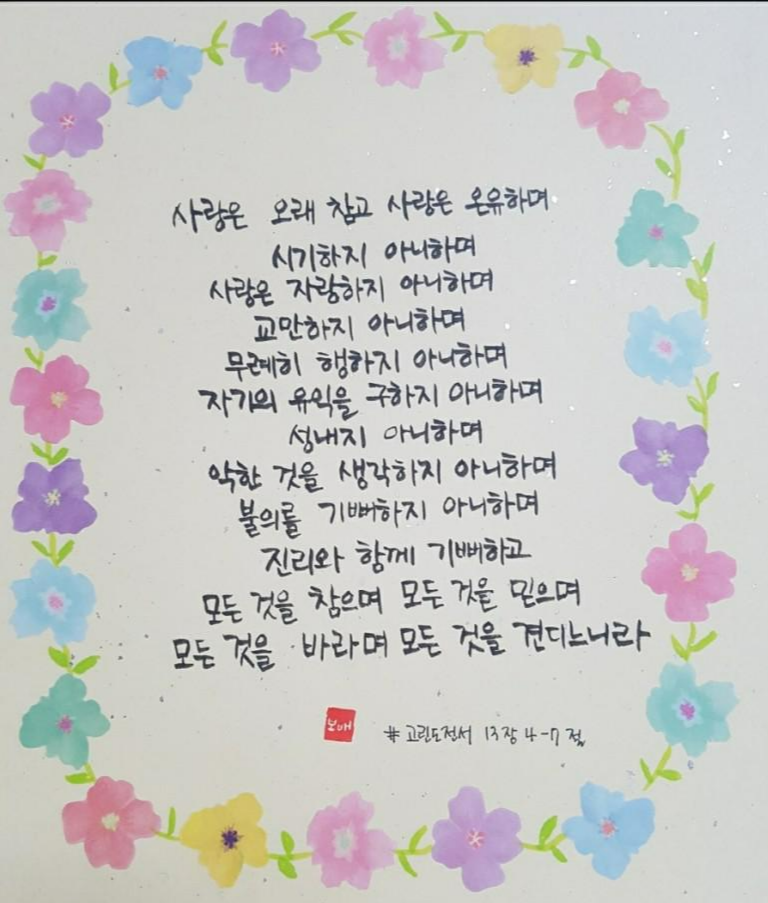 사랑은 오래 참고 사랑은 온유하며
시기하지 아니하며
사랑은 자랑하지 아니하며
교만하지 아니하며
무례히 행하지 아니하며
자기의 유익을 구하지 아니하며
성내지 아니하며
악한 것을 생각하지 아니하며
불의를 기뻐하지 아니하며
진리와 함께 기뻐하고
모든 것을 참으며 모든 것을 믿으며
모든 것을 바라며 모든 것을 견디느니라
보애
# 고린도전서 13장 4-7절